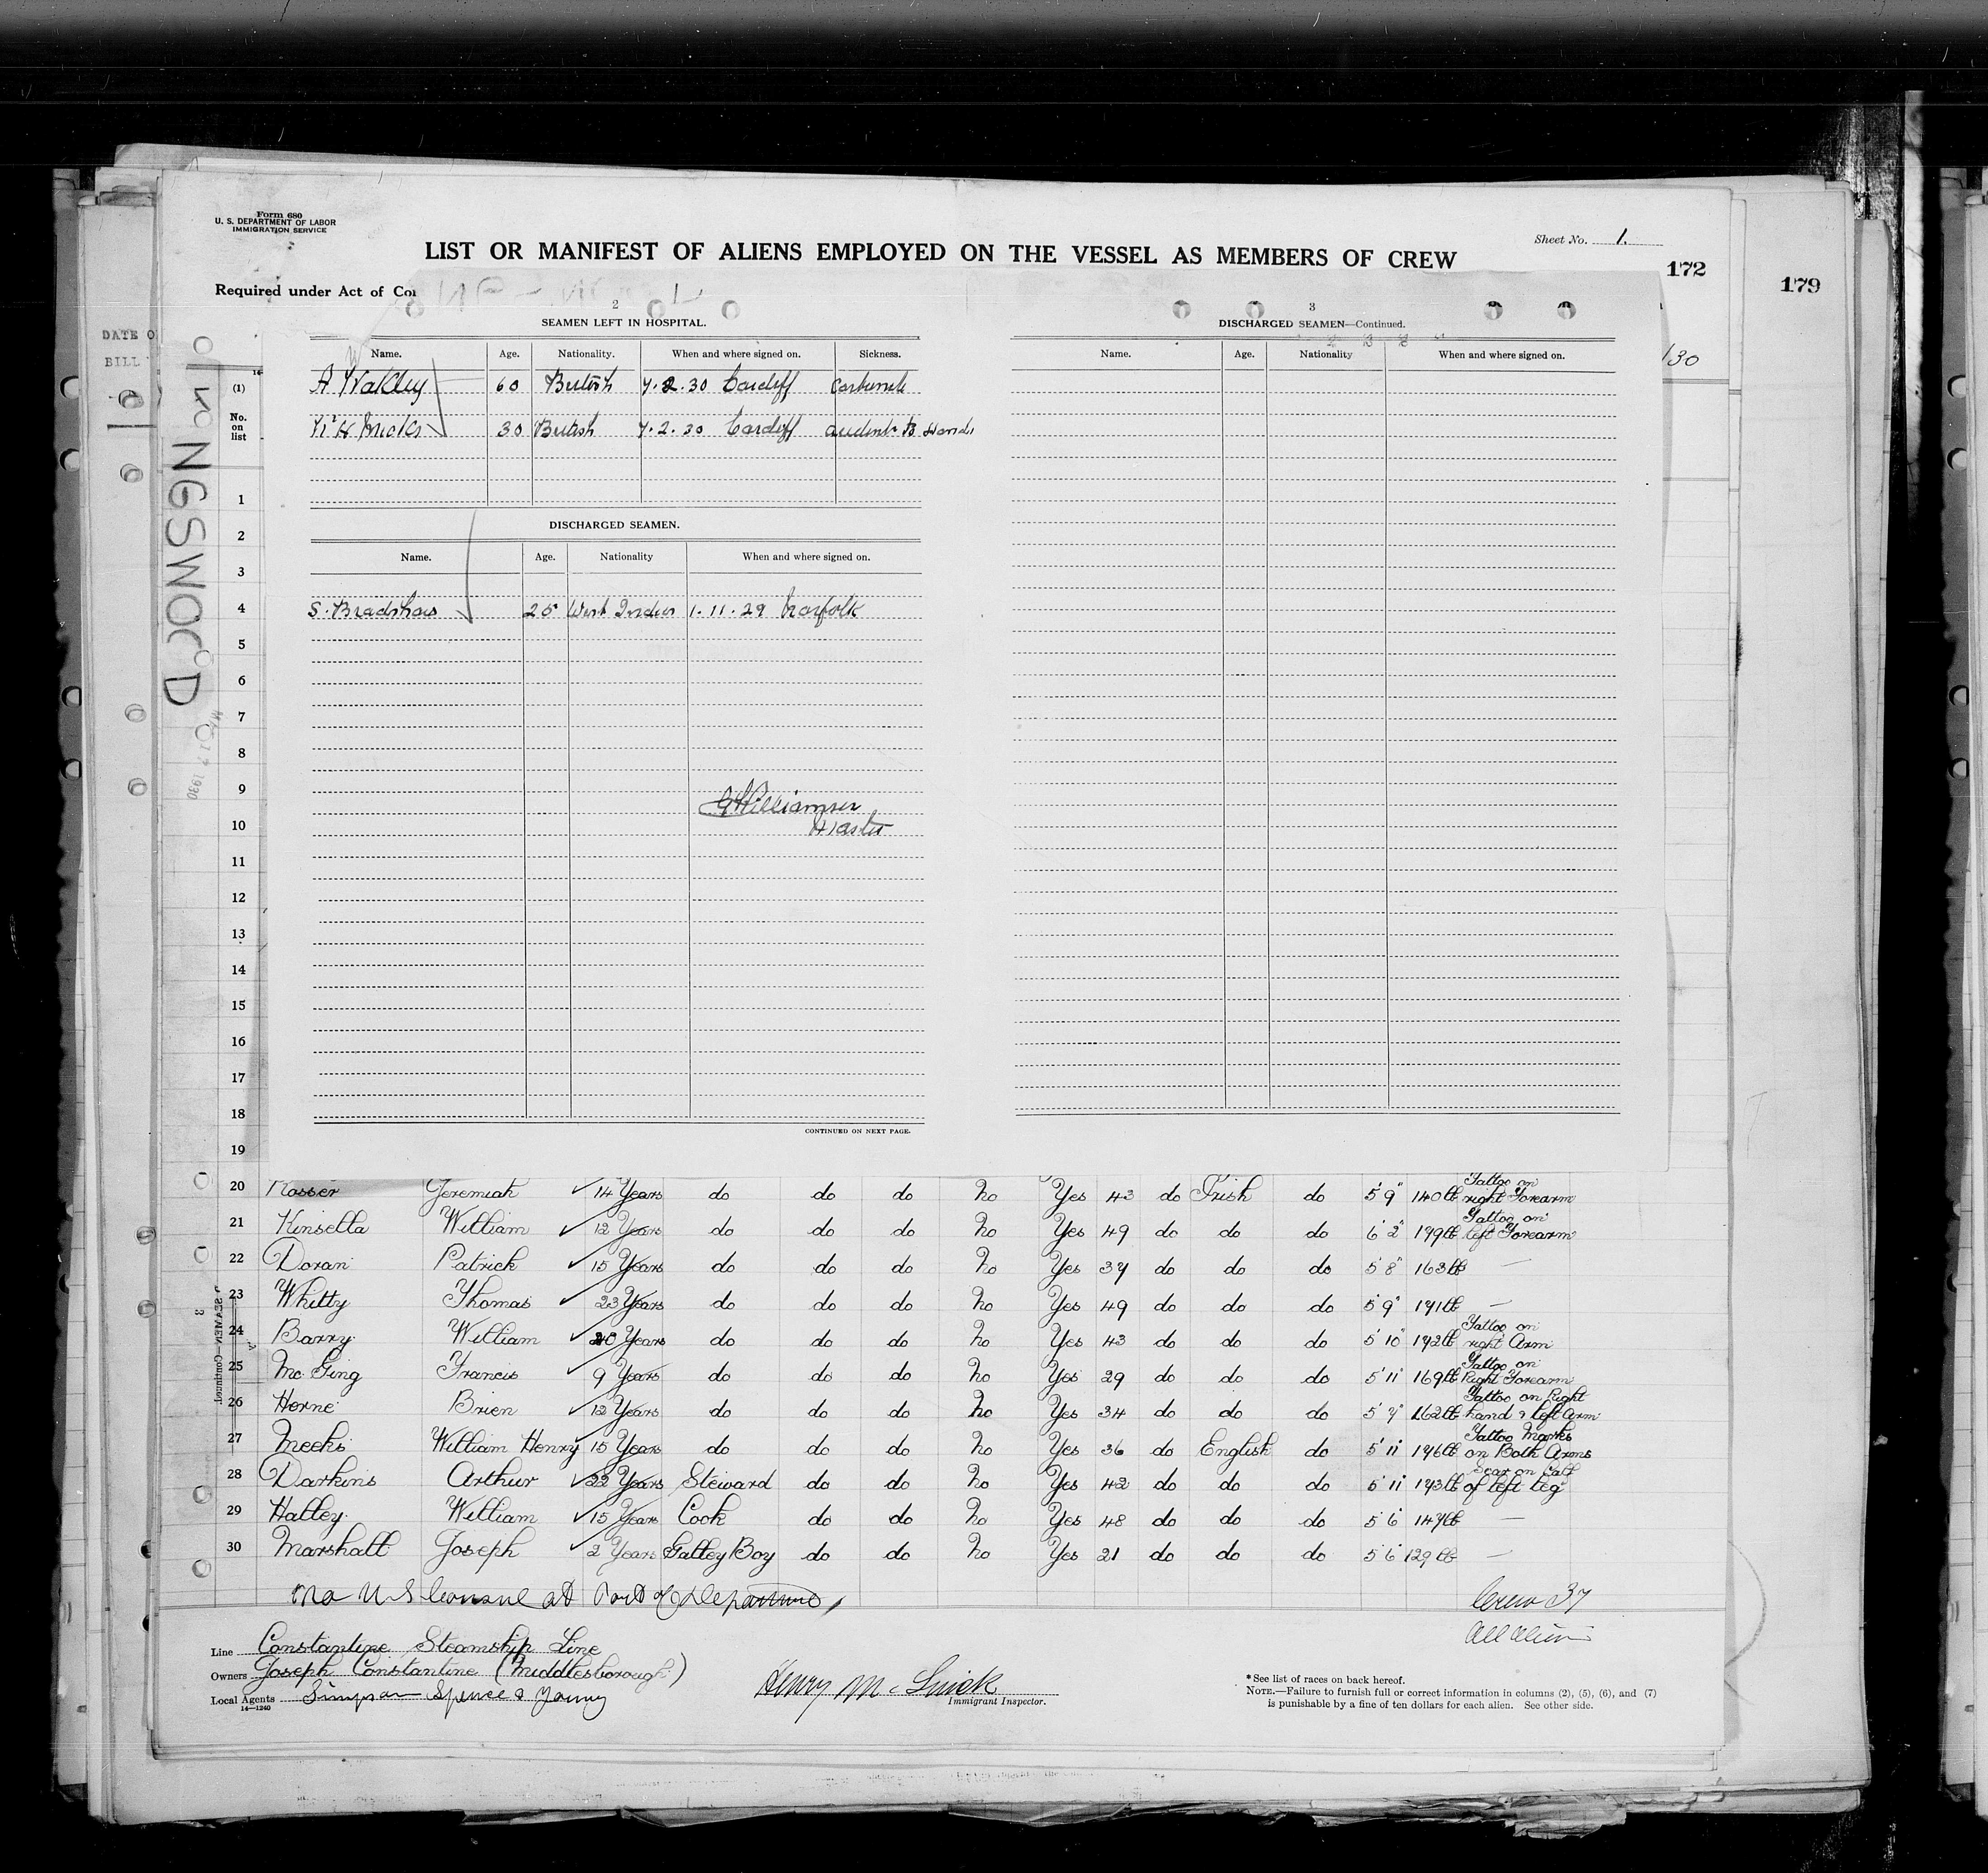 Form 680
U. S. DEPARTMENT OF LABOR
IMMIGRATION SERVICE
Sheet No. 1.
LIST OR MANIFEST OF ALIENS EMPLOYED ON THE VESSEL AS MEMBERS OF CREW
172
179
Required under Act of Con
DATE O
BILL
KINGSWOOD
1930
/30
2
SEAMEN LEFT IN HOSPITAL.
Name. Age. Nationality. When and where signed on. Sickness.
A Wakley 60 British 7.2.30 Cardiff Carbuncle
30 British 7.2.30 Cardiff
DISCHARGED SEAMEN.
Name. Age. Nationality When and where signed on.
S. Bradshaw 25 West Indies 1.11.29 Norfolk
Williamson
Master
CONTINUED ON NEXT PAGE.
3
DISCHARGED SEAMEN—Continued.
Name. Age. Nationality When and where signed on.
(1)
No.
on
list
1
2
3
4
5
6
7
8
9
10
11
12
13
14
15
16
17
18
19
20 Rosser Jeremiah 14 Years do do do No Yes 43 do Irish do 5' 9" 140 lb Tattoo on right Forearm
21 Kinsella William 12 Years do do do No Yes 49 do do do 6' 2" 199 lb Tattoo on left Forearm
22 Doran Patrick 15 Years do do do No Yes 37 do do do 5' 8" 163 lb —
23 Whitty Thomas 23 Years do do do No Yes 49 do do do 5' 9" 171 lb —
24 Barry William 20 Years do do do No Yes 43 do do do 5' 10" 172 lb Tattoo on right Arm
25 Mc Ging Francis 9 Years do do do No Yes 29 do do do 5' 11" 169 lb Tattoo on Right Forearm
26 Horne Brien 12 Years do do do No Yes 34 do do do 5' 7" 162 lb Tattoo on Right hand & left Arm
27 Meeks William Henry 15 Years do do do No Yes 36 do English do 5' 11" 176 lb Tattoo Marks on Both Arms
28 Darkins Arthur 22 Years Steward do do No Yes 42 do do do 5' 11" 173 lb Scar on Calf of left leg
29 Hatley William 15 Years Cook do do No Yes 48 do do do 5' 6" 147 lb —
30 Marshall Joseph 2 Years Galley Boy do do No Yes 21 do do do 5' 6" 129 lb —
No U S Consul at Port of Departure,
Crew 37
All alien
Line Constantine Steamship Line
Owners Joseph Constantine (Middlesborough)
Local Agents Simpson Spence & Young
14—1240
Henry Mc
Immigrant Inspector.
*See list of races on back hereof.
NOTE.—Failure to furnish full or correct information in columns (2), (5), (6), and (7)
is punishable by a fine of ten dollars for each alien. See other side.